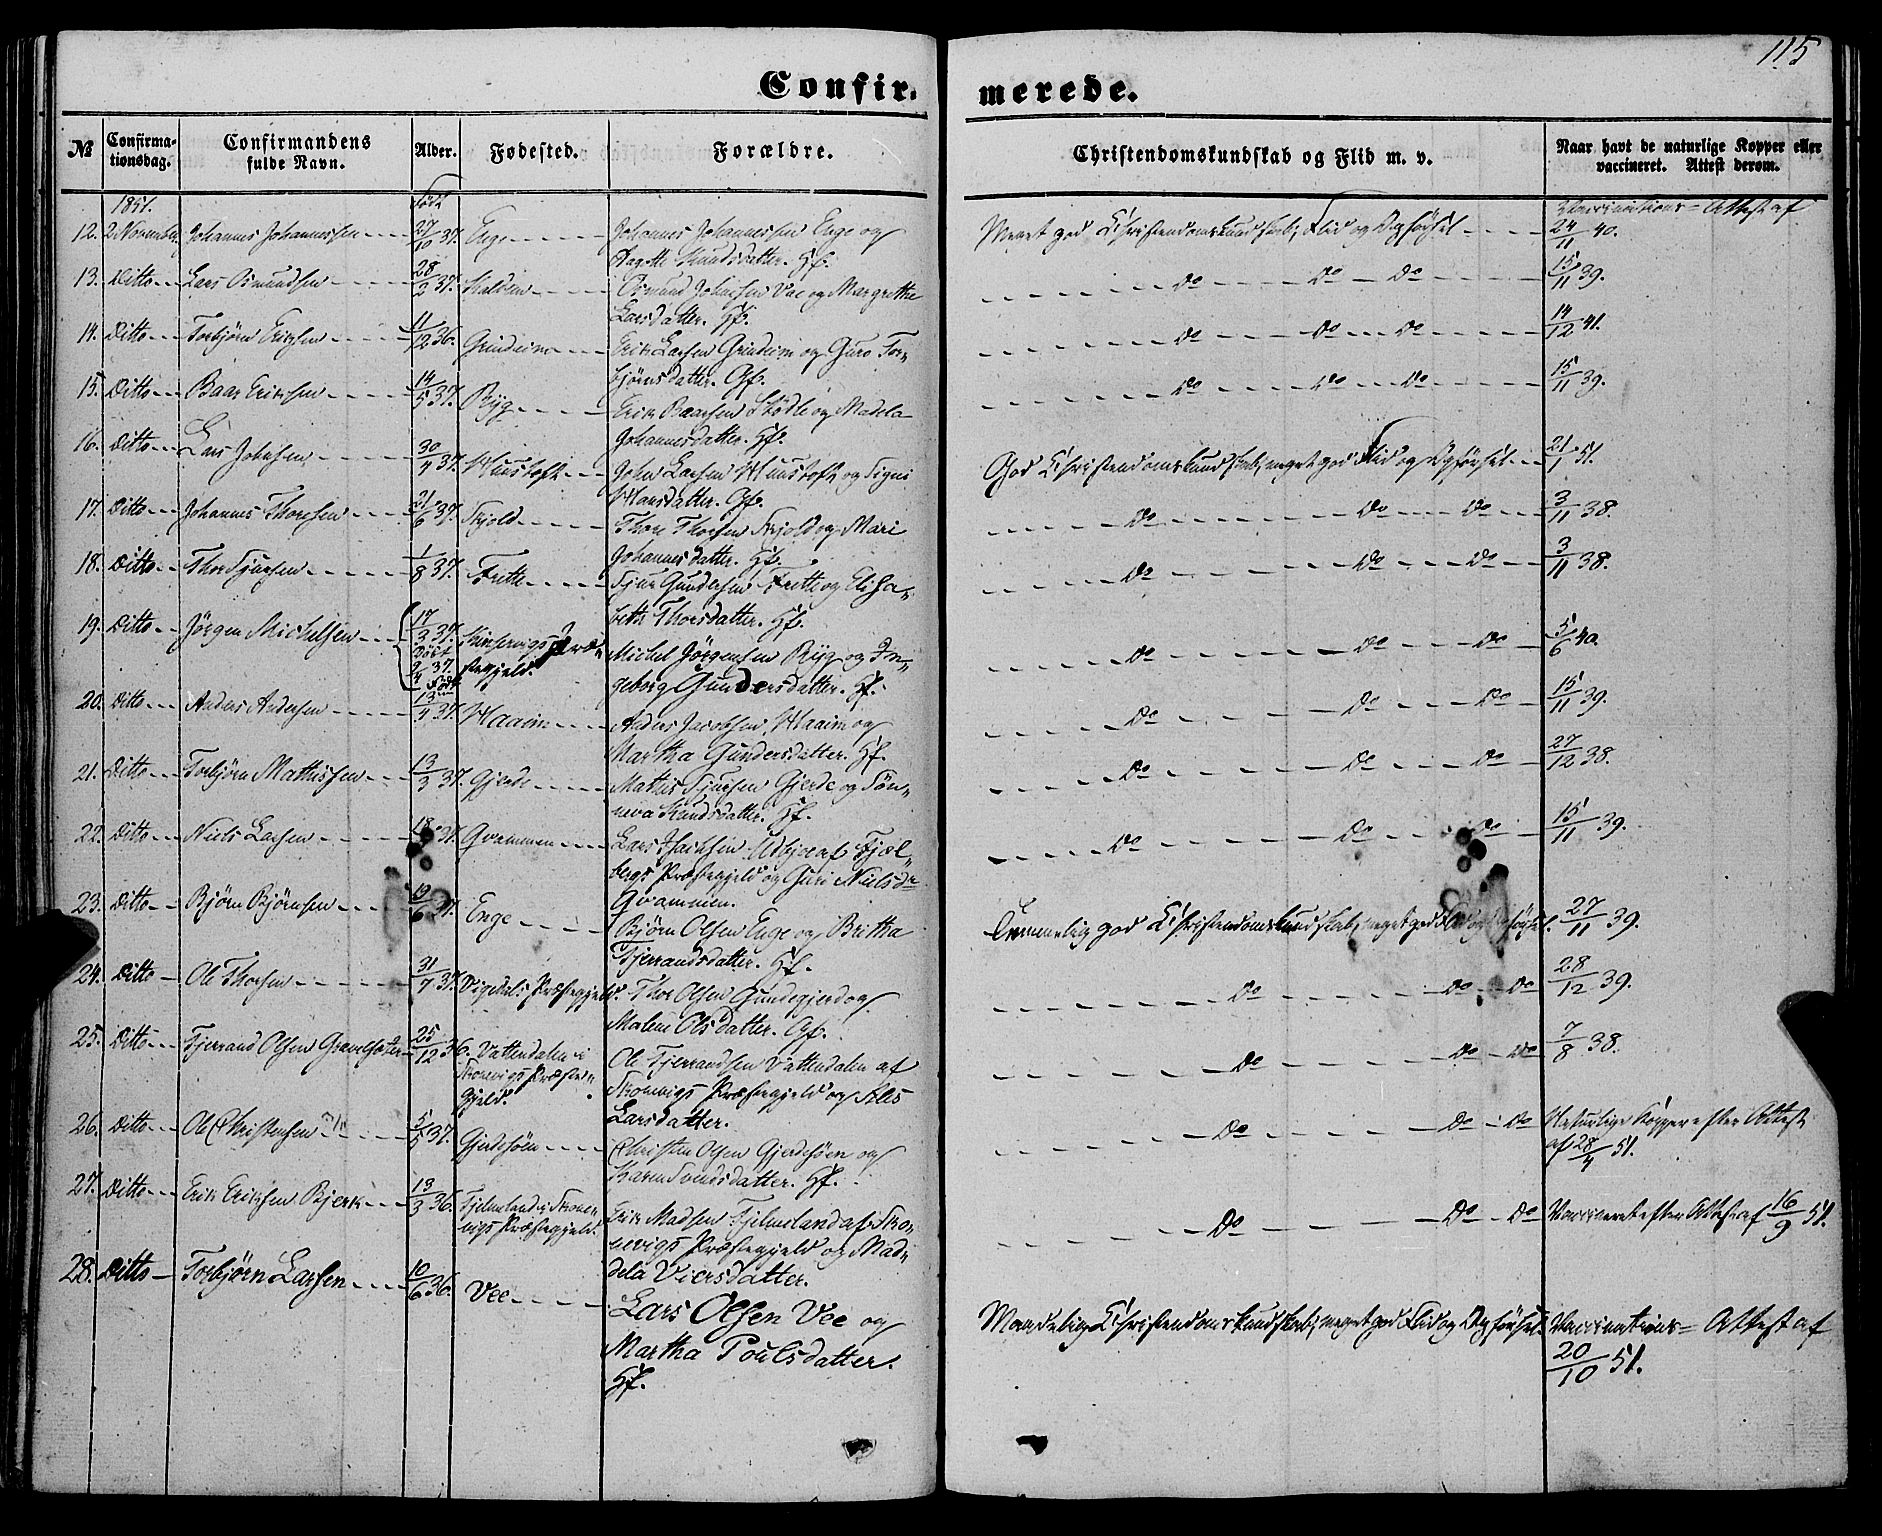 115
Confirmerede.
№ Confirmationsdag. Confirmandens fulde Navn. Alder. Fødested. Forældre. Christendomskundskab og Flid m. v. Naar havt de naturlige Kopper eller vaccineret. Attest derom.
1851. Født Vaccinations= Attest af
12. 2 November Johannes Johannessen 27/10 37. Enge Johannes Johannessen Enge og Meget god Christendomskundskab, Flid og Opførsel 24/11 40.
Knudsdatter. Gf.
13. Ditto Lars Osmundsen 28/2 37. Osmund Johnsen Vae og Margrethe Do Do Do 15/11 39.
Larsdatter. Gf.
14. Ditto Torbjørn Eriksen 11/12 36. Grindeim Erik Larsen Grindeim og Guro Tor- Do Do Do 14/12 41.
bjørnsdatter. Gf.
15. Ditto Baar Eriksen 14/5 37. Ryg Erik Baarsen Stødle og Madela Do Do Do 15/11 39.
Johannesdatter. Gf.
16. Ditto Lars Johnsen 30/4 37. Huustoft John Larsen Huustoft og Signi God Christendomskundskab, meget god Flid og Opførsel 21/1 51.
Hansdatter. Gf.
17. Ditto Johannes Thoresen 21/6 37. Skjold Thore Thorsen Skjold og Mari Do Do Do 3/11 38.
Johannesdatter. Gf.
18. Ditto Thor Sjursen 1/8 37. Frette Sjur Gundersen Frette og Elisa- Do Do Do 3/11 38.
beth Thorsdatter. Gf.
19. Ditto Jørgen Michelsen 17/3 37. Døbt 2/4 37. Kinservigs Præstegjeld. Michel Jørgensen Ryg og In- Do Do Do 5/6 40.
geborg Gundersdatter. Gf.
20. Ditto Anders Andersen Født 13/4 37. Haaim Anders Jacobsen Haaim og Do Do Do 15/11 39.
Martha Gundersdatter. Gf.
21. Ditto Torbjørn Mathissen 13/3 37. Gjerde Mathis Sjursen Gjerde og Søn- Do Do Do 27/12 38.
neva Knudsdatter. Gf.
22. Ditto Niels Larsen 37. Qvammen Lars Isachsen Udbjoe af Fjæl- Do Do Do 15/11 39.
bergs Præstegjeld og Guri Nielsdr
Qvammen.
23. Ditto Bjørn Bjørnsen 19/6 37. Enge Bjørn Olsen Enge og Britha Temmelig god Christendomskundskab, meget god Flid og Opførsel. 27/11 39.
Fjerrandsdatter. Gf.
24. Ditto Ole Thorsen 31/7 37. Vigedals Præstegjeld. Thor Olsen Gundegjerd og Do Do Do 28/12 39.
Malene Olsdatter. Gf.
25. Ditto Fjerrand Olsen Gravelsæter 25/12 36. Vattendalen i Skonevigs Præstegjeld. Ole Fjerrandsen Vattendalen af Do Do Do 7/8 38.
Skonevigs Præstegjeld og
Larsdatter.
26. Ditto Ole Christensen 5/5 37. Gjerdsøen Christen Olsen Gjerdesøen og Do Do Do Naturlige Kopper efter Attest
Karen Svendsdatter. Gf. af 28/4 51.
27. Ditto Erik Eriksen Bjerk 13/3 36. Fjelmeland i Skonevigs Præstegjeld. Erik Madsen Fjelmeland af Sko- Do Do Do Vaccineret efter Attest af 16/9 51.
nevigs Præstegjeld og Mad-
dela Viersdatter.
28. Ditto Torbjørn Larsen 10/6 36. Vee Lars Olsen Vee og Maadelig Christendomskundskab, meget god Flid og Opførsel Vaccinations= Attest af
Martha Poulsdatter. 20/10 51.
Gf.